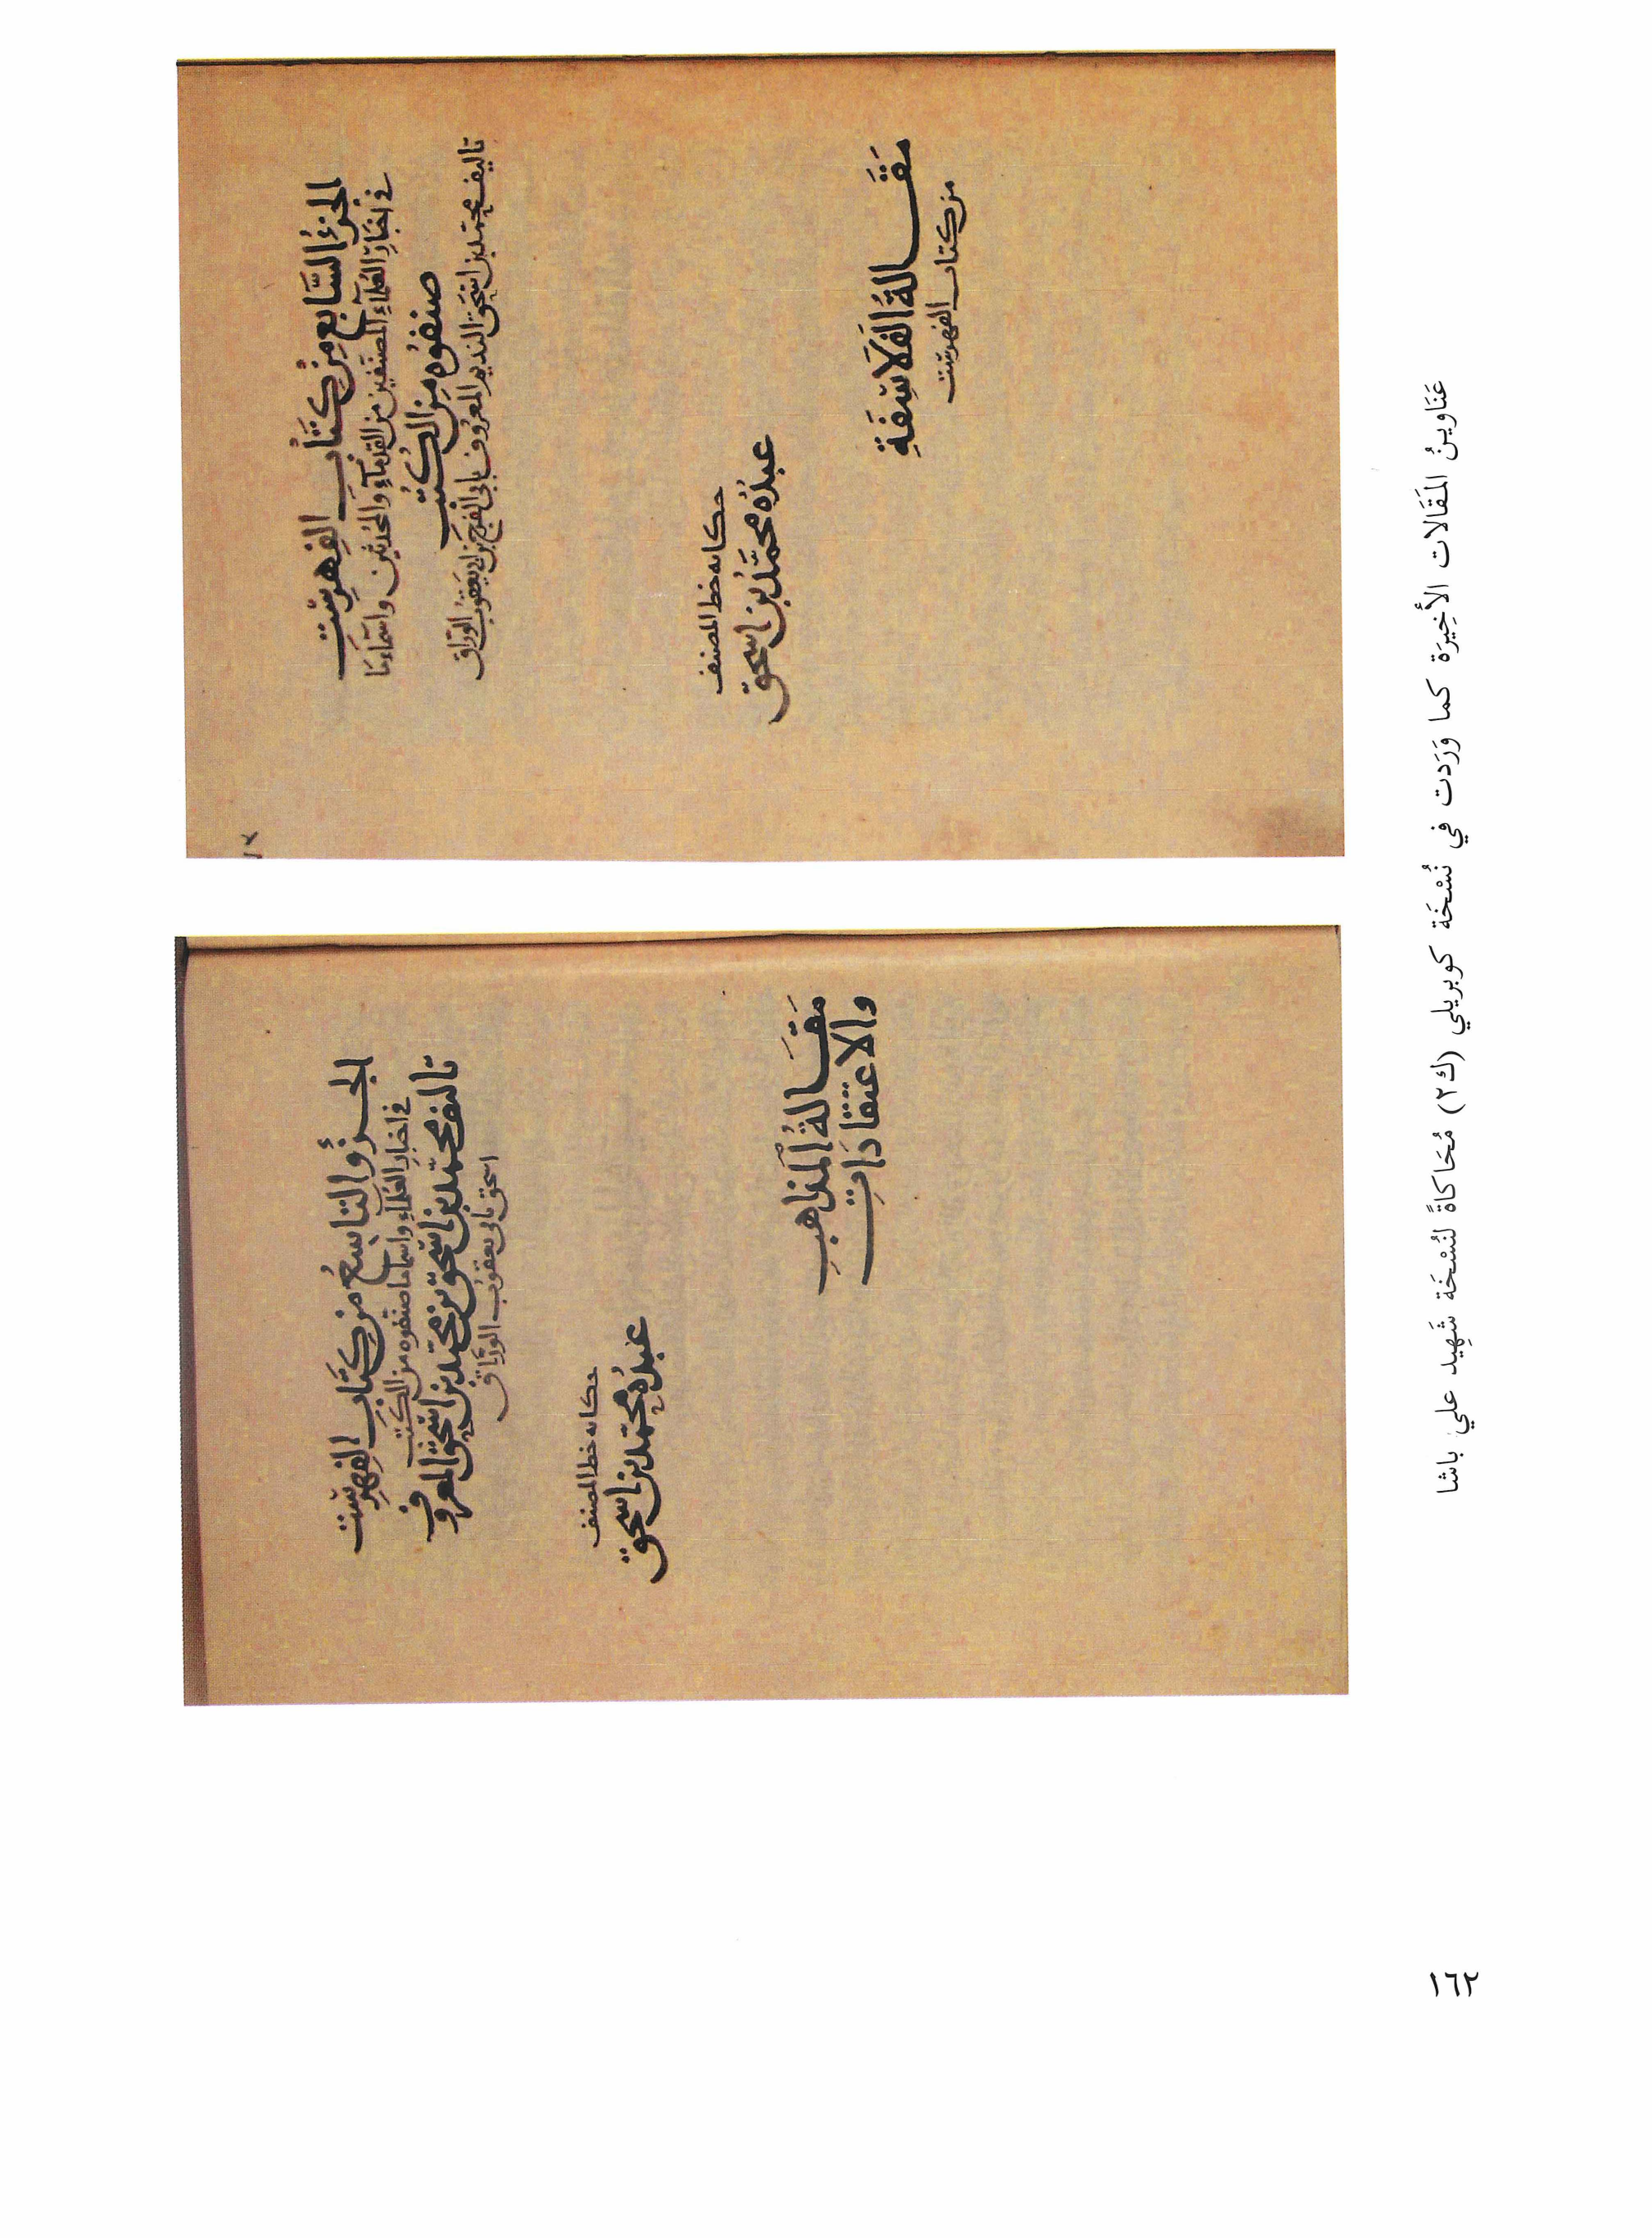 الجزءُ السَّابع مِنْ كتَابِ الفِهْرِسْتِ
في اخبَارِ العُلمَآءِ المصنفين من القدمآءِ والمحُدثين واسْمَاء مَا
صنفوُه مِنَ الكتُبِ
تاليف محمّد بن اسْحَق النديم المعرُوف بابى الفرج بن ابى يَعقوُبَ الورّاق
حكايه خط المصنف
عبدُهُ محمَّدُ بن اسحق
مَقَالةُ الفَلاسِفَةِ
من كتاب الفهرسْت
الجزؤ التاسِعُ مِن كتَابَ الفِهرسْت
في اخبارِ العُلمآءِ واسمآء ما صَنفوه من الكتب
تاليف محمّد بن اسْحَق بن محمّد بن اسْحَق المعروف
اسحق بابى يعقوُب الورَّاق
حكايه خط المصنف
عَبدُهُ محمّد بن اسحق
مَقَالةُ المَذاهبِ
والاعتقادَاتِ
عَنَاوينُ المَقَالات الأخِيرَة كما وَرَدَت في نُسْخَة كوبريلي (ك٢) مُحَاكاةً لنُسْخَة شَهِيد علي باشا